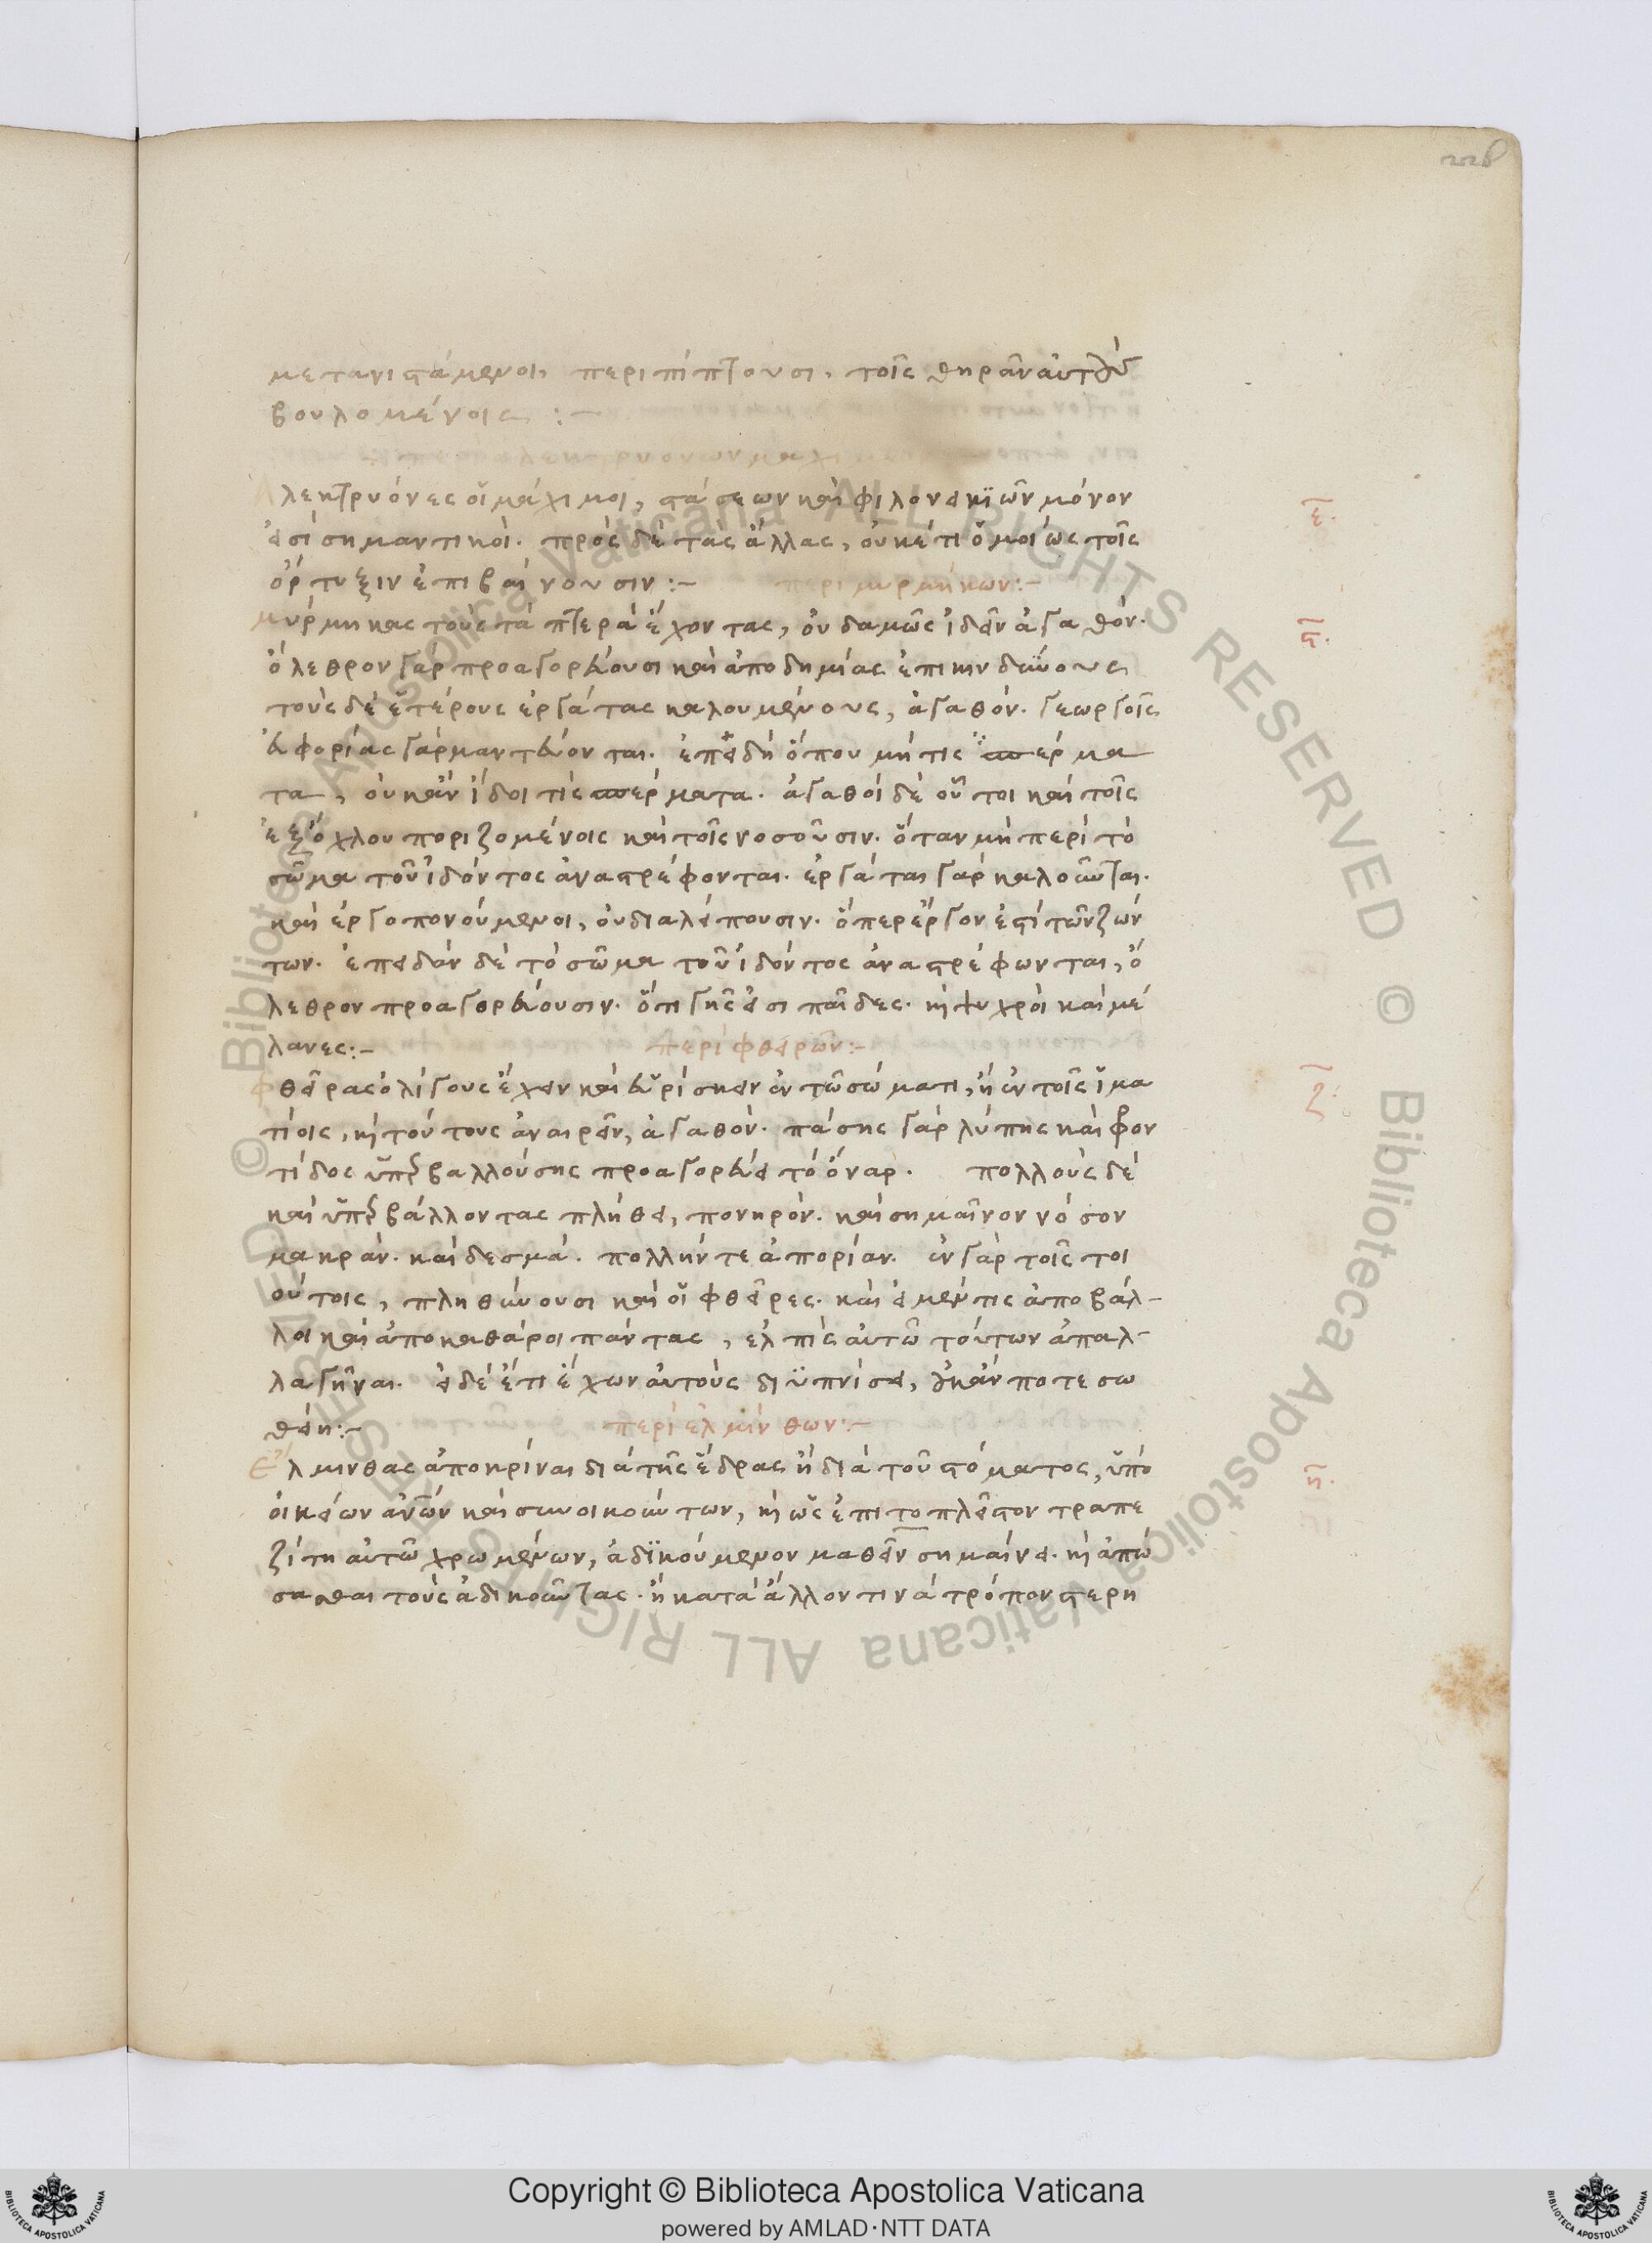 228
μετανιστάμενοι, περιπίπτουσι, τοῖς θηρᾶν αὐτοὺς
βουλομένοις :-
περὶ ἀλεκτρυόνων μαχίμων
Ἀλεκτρυόνες οἱ μάχιμοι, στάσεων καὶ φιλονεικιῶν μόνον ε̄.
εἰσὶ σημαντικοί. πρὸς δὲ τὰς ἄλλας, οὐκέτι ὁμοίως τοῖς
ὄρτυξιν ἐπιβαίνουσιν :- περὶ μυρμήκων :-
μύρμηκας τοὺς τὰ πτερὰ ἔχοντας, οὐδαμῶς ἰδεῖν ἀγαθόν. ϛ̄.
ὄλεθρον γὰρ προαγορεύουσι καὶ ἀποδημίας ἐπικινδύνους
τοὺς δὲ ἑτέρους ἐργάτας καλουμένους, ἀγαθόν. γεωργοῖς
εὐφορίας γὰρ μαντεύονται. ἐπειδὴ ὅπου μή τις σπέρμα
τα, οὐκ ἂν ἴδοι τις σπέρματα. ἀγαθοὶ δὲ οὗτοι καὶ τοῖς
ἐξ ὄχλου ποριζομένοις καὶ τοῖς νοσοῦσιν. ὅταν μὴ περὶ τὸ
σῶμα τοῦ ἰδόντος ἀναστρέφονται. ἐργάται γὰρ καλοῦνται.
καὶ ἐργοπονούμενοι, οὐ διαλείπουσιν. ὅπερ ἔργον ἐστὶ τῶν ζών
των. ἐπειδὰν δὲ τὸ σῶμα τοῦ ἰδόντος ἀναστρέφωνται, ὄ
λεθρον προαγορεύουσιν. ὅτι γῆς εἰσι παῖδες. καὶ ψυχροὶ καὶ μέ
λανες :- περὶ φθειρῶν :-
φθεῖρας ὀλίγους ἔχειν καὶ εὑρίσκειν ἐν τῷ σώματι, ἢ ἐν τοῖς ἱμα ζ̄.
τίοις, καὶ τούτους ἀναιρεῖν, ἀγαθόν. πάσης γὰρ λύπης καὶ φρον
τίδος ὑπερβαλλούσης προαγορεύει τὸ ὄναρ. πολλοὺς δὲ
καὶ ὑπερβάλλοντας πλήθει, πονηρόν. καὶ σημαῖνον νόσον
μακράν. καὶ δεσμά. πολλήν τε ἀπορίαν. ἐν γὰρ τοῖς τοι
ούτοις, πληθύνουσι καὶ οἱ φθεῖρες. καὶ εἰ μέν τις ἀποβάλ-
λοι καὶ ἀποκαθάροι πάντας, ἐλπὶς αὐτῷ τούτων ἀπαλ-
λαγῆναι. εἰ δὲ ἔτι ἔχων αὐτοὺς διϋπνίσει, οὐκ ἄν ποτε σω
θείη :- περὶ ἑλμίνθων :-
Ἕλμινθας ἀποκρίναι διὰ τῆς ἕδρας ἢ διὰ τοῦ στόματος, ὑπὸ η̄.
οἰκείων ἀνῶν καὶ συνοικούντων, καὶ ὡς ἐπιτοπλεῖστον τραπε
ζίτη αὐτῷ χρωμένων, ἀδϊκούμενον μαθεῖν σημαίνει. καὶ ἀπώ
σασθαι τοὺς ἀδικοῦντας. ἢ κατὰ ἄλλον τινὰ τρόπον στερη
© Biblioteca Apostolica Vaticana ALL RIGHTS RESERVED © Biblioteca Apostolica Vaticana ALL RIGHTS RESERVED
Copyright © Biblioteca Apostolica Vaticana
powered by AMLAD·NTT DATA
BIBLIOTECA APOSTOLICA VATICANA
BIBLIOTECA APOSTOLICA VATICANA